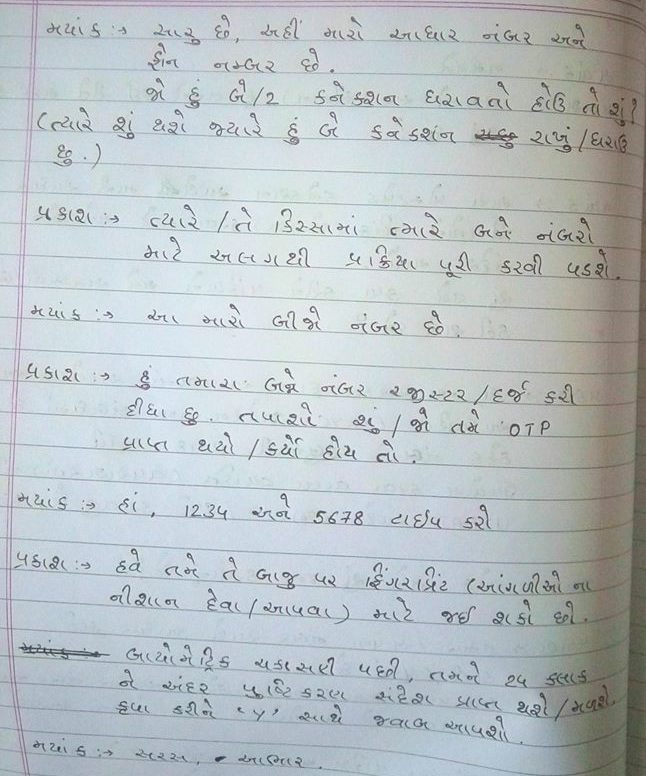 મયાંક :→ સારુ છે, અહીં મારો આધાર નંબર અને
ફોન નમ્બર છે.
જો હું બે/2 કનેકશન ધરાવતો હોઉ તો શું?
(ત્યારે શું થશે જ્યારે હું બે કનેકશંન રાખું/ધરાઉ
છુ.)
પ્રકાશ :→ ત્યારે/તે કિસ્સામાં ત્મારે બંને નંબરો
માટે અલગથી પ્રક્રિયા પૂરી કરવી પડશે.
મયાંક :→ આ મારો બીજો નંબર છે.
પ્રકાશ :→ હું તમારા બન્ને નંબર રજીસ્ટર/દર્જ કરી
દીધા છુ. તપાશો શું/જો તમે OTP
પ્રાપ્ત થયો/કર્યો હોય તો.
મયાંક :→ હાં, 1234 અને 5678 ટાઈપ કરો
પ્રકાશ :→ હવે તમે તે બાજુ પર ફિંગરપ્રિંટ (આંગળીઓ ના
નીશાન દેવા/આપવા) માટે જઈ શકો છો.
બાયોમેટ્રિક ચકાસણી પછી, તમને 24 કલાક
ને અંદર પુષ્ટિકરણ સંદેશ પ્રાપ્ત થશે/મળશે.
કૃપા કરીને 'y' સાથે જવાબ આપશો.
મયાંક :→ સરસ, આભાર.